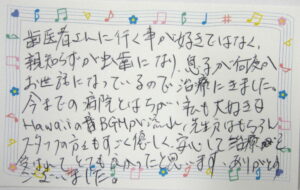 歯医者さんに行く事が好きではなく、
親知らずが虫歯になり、息子が何度か
お世話になっているので治療にきました。
今までの病院とはちがい、私も大好きな
Hawaiiの音BGMが流れ、先生方はもちろん
スタッフの方もすごく優しく、安心して治療
とても よかったと思います。ありがとう
ございました。